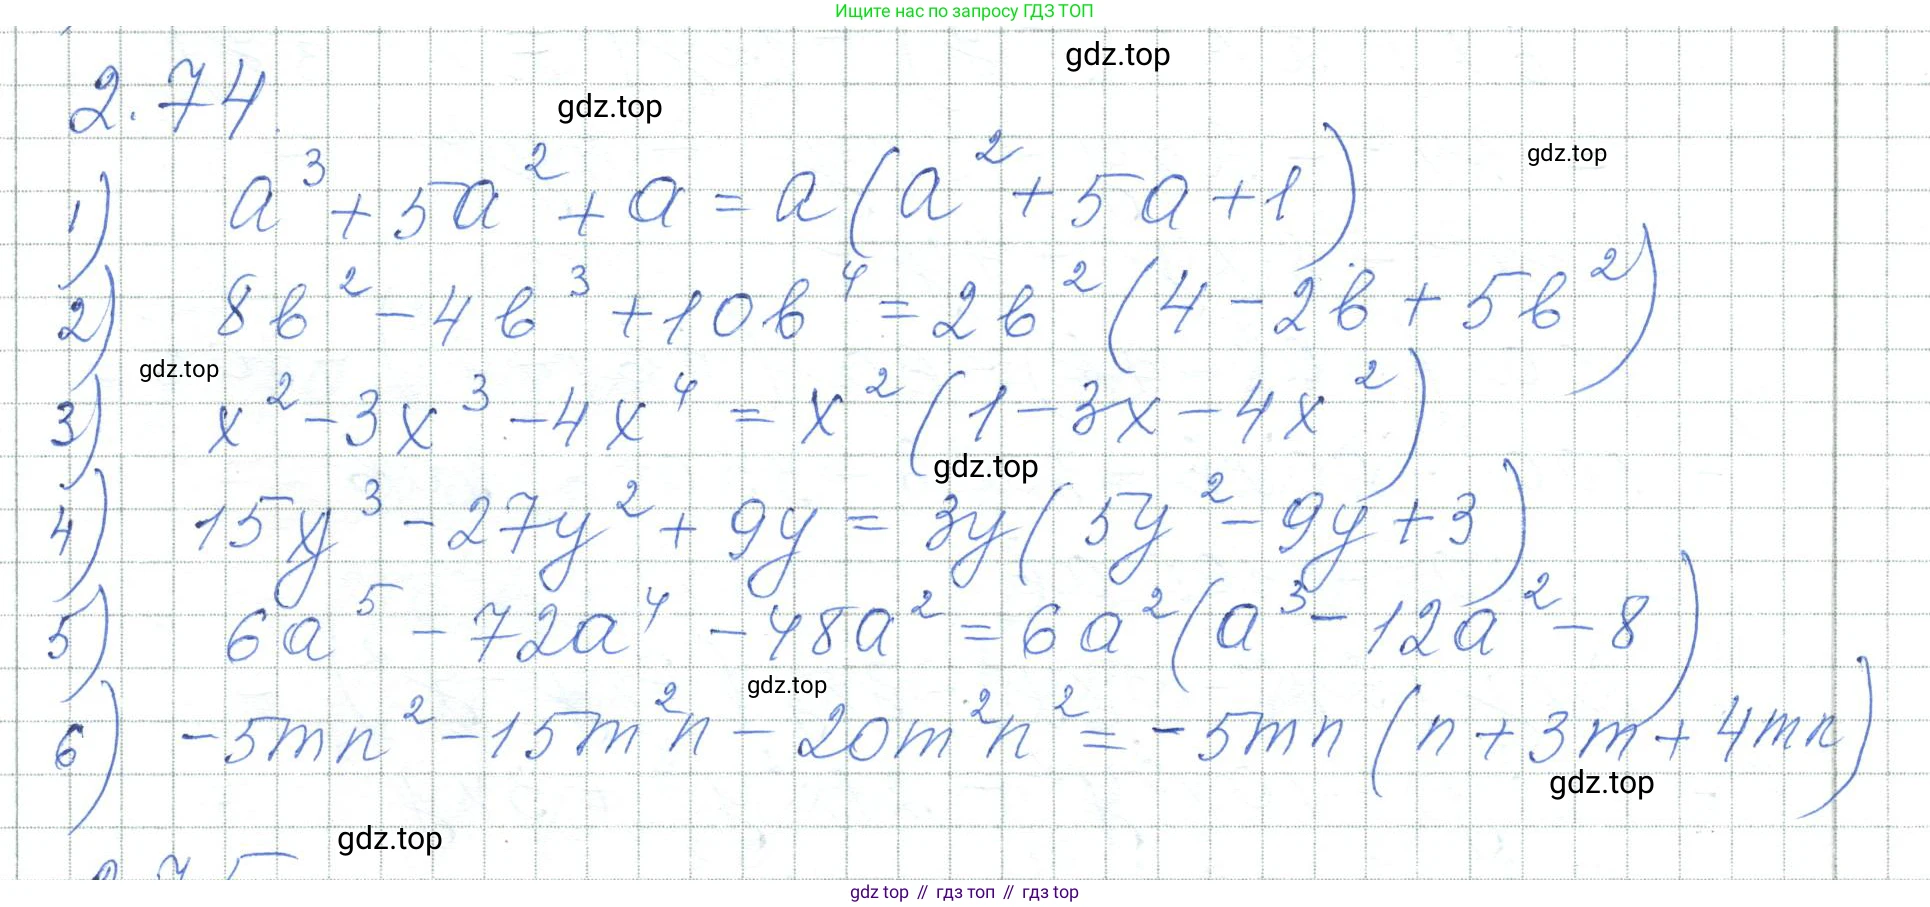 Ищите нас по запросу ГДЗ ТОП
gdz.top
2.74.
gdz.top
gdz.top
1) a³ + 5a² + a = a(a² + 5a + 1)
2) 8b² - 4b³ + 10b⁴ = 2b²(4 - 2b + 5b²)
gdz.top
3) x² - 3x³ - 4x⁴ = x²(1 - 3x - 4x²)
gdz.top
4) 15y³ - 27y² + 9y = 3y(5y² - 9y + 3)
5) 6a⁵ - 72a⁴ - 48a² = 6a²(a³ - 12a² - 8)
gdz.top
6) -5mn² - 15m²n - 20m²n² = -5mn(n + 3m + 4mn)
gdz.top
gdz.top
gdz top // гдз топ // гдз top